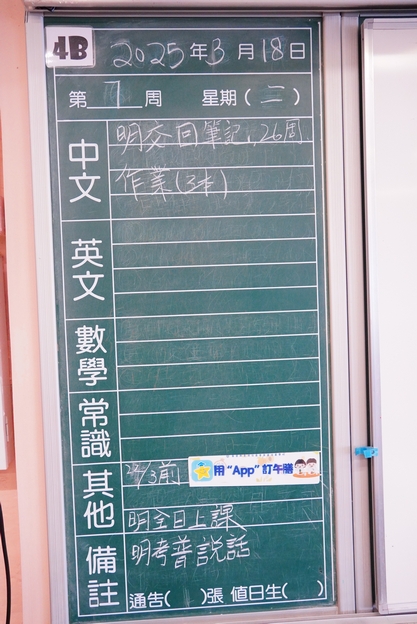 4B
2025年3月18日
第 周 星期(二)
中文
明交回筆記,26周
作業(3本)
英文
數學
常識
其他
/3前
用"App"訂午膳
明全日上課
備註
明考普說話
通告( )張 值日生( )